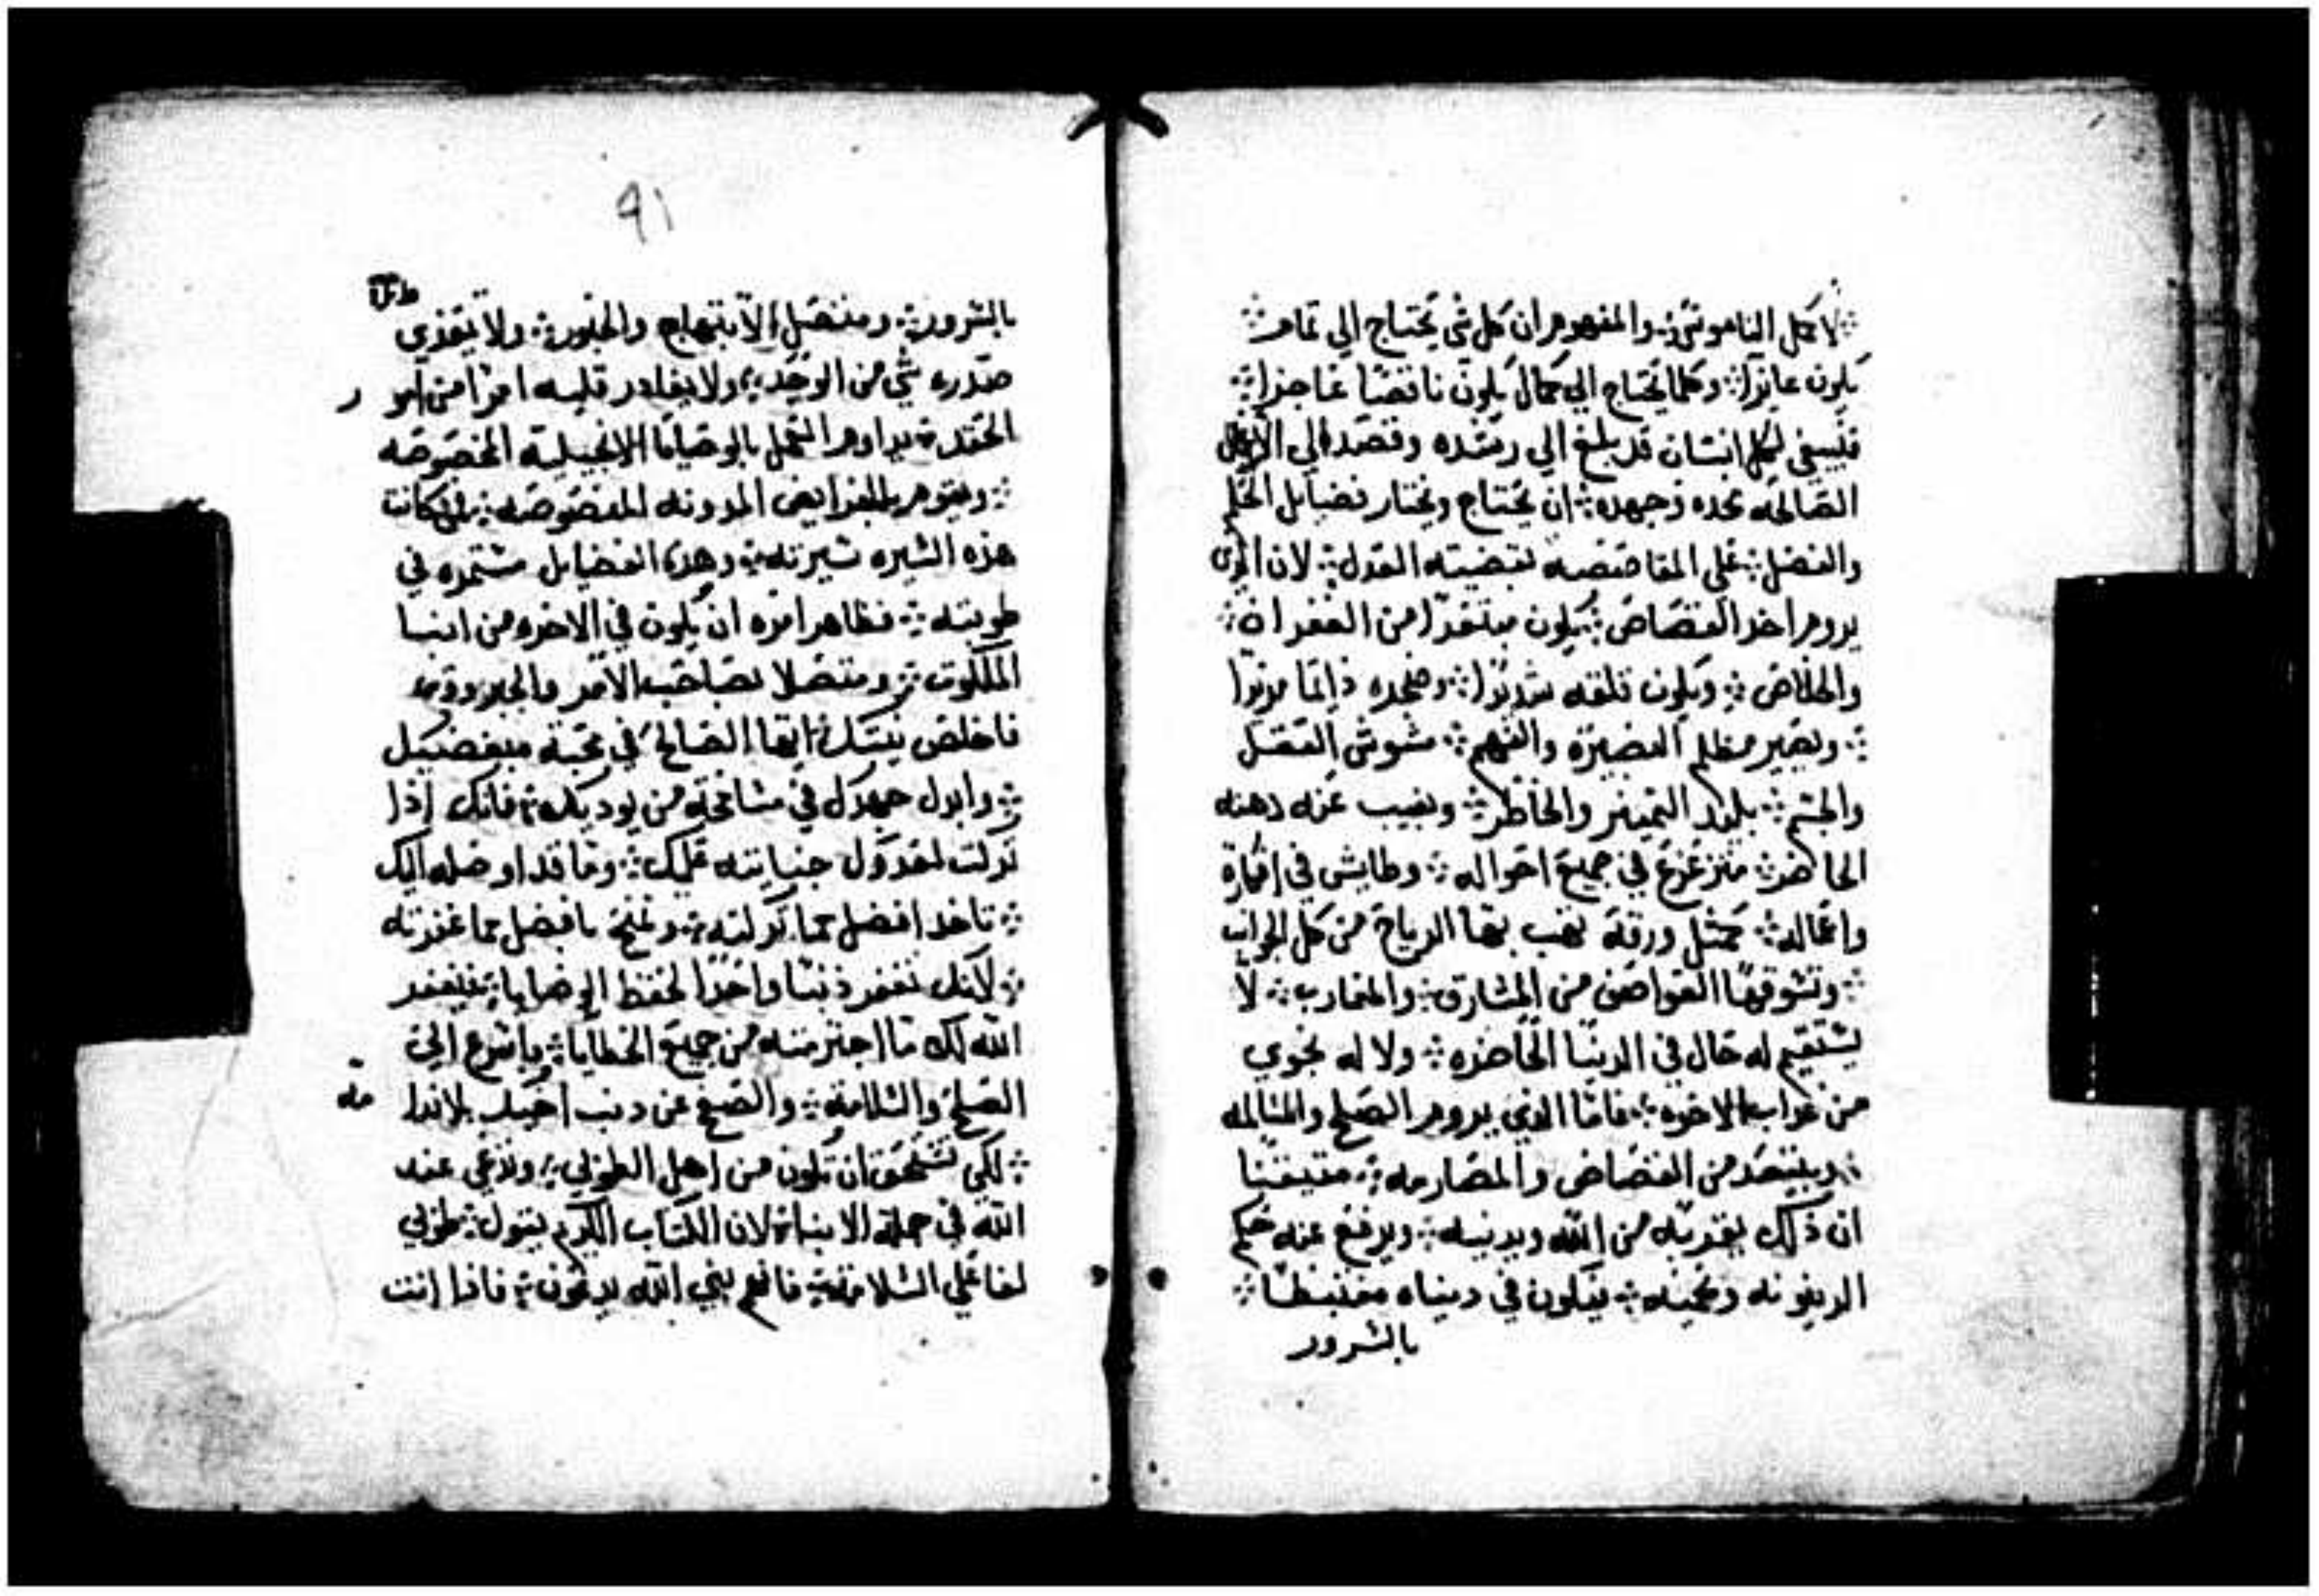 لاكمل الناموس ⁘ والمفهوم ان كل شي يحتاج الي تمام ⁘
يكون عايزا ⁘ وكلما يحتاج الي كمال يكون ناقصا عاجزا ⁘
فينبغي لكل انسان قد بلغ الي رشده وقصد الي الاعمال
الصالحه بجده وجهده ⁘ ان يحتاج ويختار فضايل الحلم
والفضل ⁘ علي المقاصصه بقضيته العدل ⁘ لان الذي
يروم اخد القصاص ⁘ يكون مبتعدا من الغفران ⁘
والخلاص ⁘ ويكون قلقه شديدا ⁘ وضجره دايما مزيدا
⁘ ويصير مظلم البصيره والفهم ⁘ مشوش العقل
والجسم ⁘ بليد التمييز والخاطر ⁘ ويغيب عنه دهنه
الحاضر ⁘ متزعزع في جميع احواله ⁘ وطايش في افكاره
واعماله ⁘ كمثل ورقة تهب بها الرياح من كل الجوانب
⁘ وتسوقها العواصف من المشارق ⁘ والمغارب ⁘ لا
يستقيم له حال في الدنيا الحاضره ⁘ ولا له نجوي
من عداب الاخره ⁘ فاما الذي يروم الصلح والمسالمه
⁘ ويبتعد من القصاص والمصارمه ⁘ متيقنا
ان ذلك يقربه من الله ويدنيه ⁘ ويرفع عنه حكم
الدينونه وينجيه ⁘ فيكون في دنياه مغتبطا ⁘
بالسرور
٩١
بالسرور ⁘ ومتصل الابتهاج والحبور ⁘ ولا يعتري
صدره شي من الوجد ⁘ ولا يغادر قلبه امرا من امور
الحقد ⁘ يداوم العمل بالوصايا الانجيلية المخصوصه
⁘ ويقوم بالفرايض المدونه المنصوصه ⁘ فمن كانت
هذه السيره سيرته ⁘ وهذه الفضايل مستمره في
طويته ⁘ فظاهر امره ان يكون في الاخره من ابنا
الملكوت ⁘ ومتصلا بصاحب الامر والجبروت
فاخلص نيتك ايها الصالح في محبة مبغضيك
⁘ وابدل جهدك في مسامحة من يوديك ⁘ فانك اذا
تركت لعدوك جنايته عليك ⁘ وما قد اوصله اليك
⁘ تاخد افضل مما تركته ⁘ وتمنح بافضل مما غفرته
⁘ لانك تغفر ذنبا واحدا لحفظ الوصايا ⁘ فيغفر
الله لك ما اجترمته من جميع الخطايا ⁘ باسرع الي
الصلح والسلامة ⁘ والصفح عن دنب اخيك بلا ندامه
⁘ لكي تستحق ان تكون من اهل الطوبي ⁘ وتدعي عند
الله في جملة الابناء ⁘ لان الكتاب الكريم يقول ⁘ طوبي
لفاعلي السلامه ⁘ فانهم بني الله يدعون ⁘ فادا انت